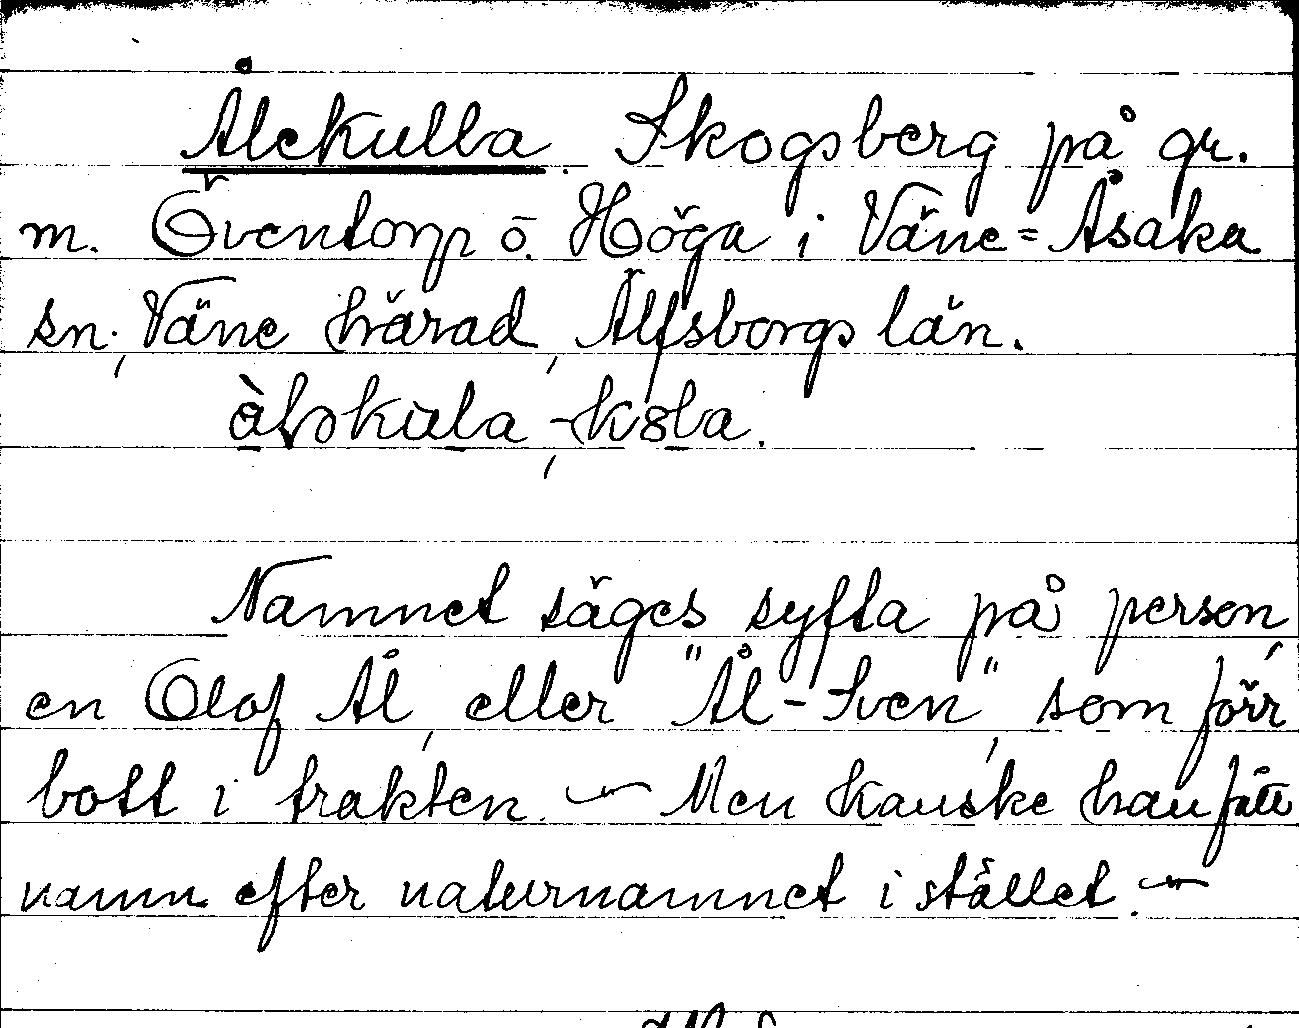 Ålekulla. Skogsberg på gr.
m. Öventorp o. Höga i Väne=Åsaka
sn., Väne härad, Älfsborgs län.
Namnet säges syfta på person,
en Olof Ål, eller "Ål-Sven", som förr
bott i trakten. — Men kanske han fått
namn efter naturnamnet i stället. —